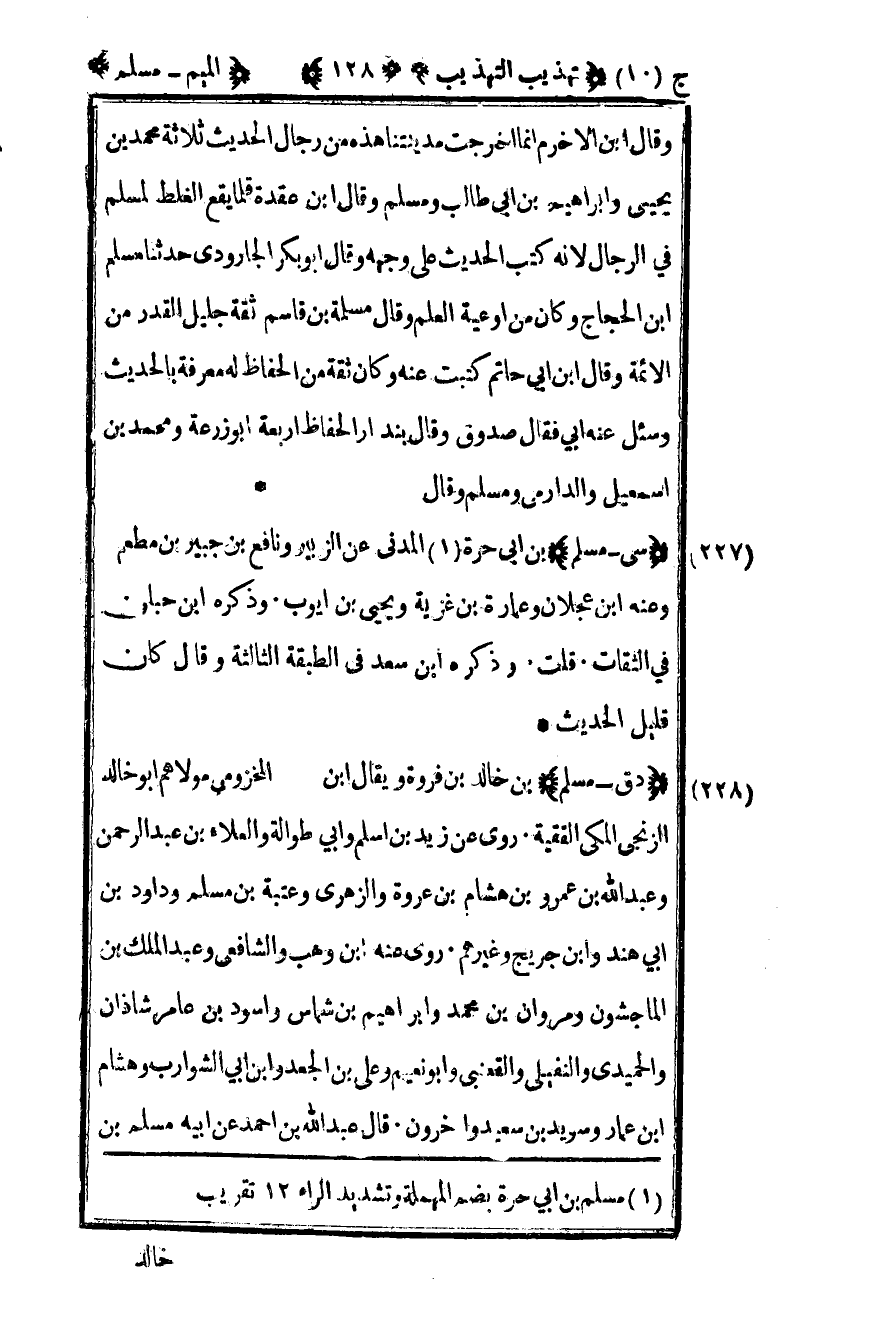 ج (١٠) ﴿ تهذيب التهذيب ﴾ ﴿ ١٢٨ ﴾ ﴿ الميم ـ مسلم ﴾
وقال ابن الاخرم انما اخرجت مدينتنا هذه من رجال الحديث ثلاثة محمد بن
يحيى وابراهيم بن ابي طالب ومسلم وقال ابن عقدة قلما يقع الغلط لمسلم
في الرجال لانه كتب الحديث على وجهه وقال ابو بكر الجارودى حدثنا مسلم
ابن الحجاج وكان من اوعية العلم وقال مسلمة بن قاسم ثقة جليل القدر من
الائمة وقال ابن ابي حاتم كتبت عنه وكان ثقة من الحفاظ له معرفة بالحديث
وسئل عنه ابي فقال صدوق وقال بندار الحفاظ اربعة ابو زرعة ومحمد بن
اسمعيل والدارمى ومسلم وقال *
(٢٢٧) ﴿ سى ـ مسلم ﴾ بن ابي حرة (١) المدنى عن الزبير ونافع بن جبير بن مطعم
وعنه ابن عجلان وعمارة بن غزية ويحيى بن ايوب · وذكره ابن حبان
في الثقات · قلت · وذكره ابن سعد فى الطبقة الثالثة وقال كان
قليل الحديث *
(٢٢٨) ﴿ دق ـ مسلم ﴾ بن خالد بن فروة ويقال ابن المخزومي مولاهم ابو خالد
الزنجى المكى الفقية · روى عن زيد بن اسلم وابي طوالة والعلاء بن عبد الرحمن
وعبد الله بن عمرو بن هشام بن عروة والزهرى وعتبة بن مسلم وداود بن
ابي هند وابن جريج وغيرهم · روى عنه ابن وهب والشافعى وعبد الملك بن
الماجشون ومروان بن محمد وابراهيم بن شماس واسود بن عامر شاذان
والحميدى والنفيلى والقعنبى وابو نعيم وعلى بن الجعد وابن ابي الشوارب وهشام
ابن عمار وسويد بن سعيد وآخرون · قال عبد الله بن احمد عن ابيه مسلم بن
(١) مسلم بن ابي حرة بضم المهملة وتشديد الراء ١٢ تقريب
خالد